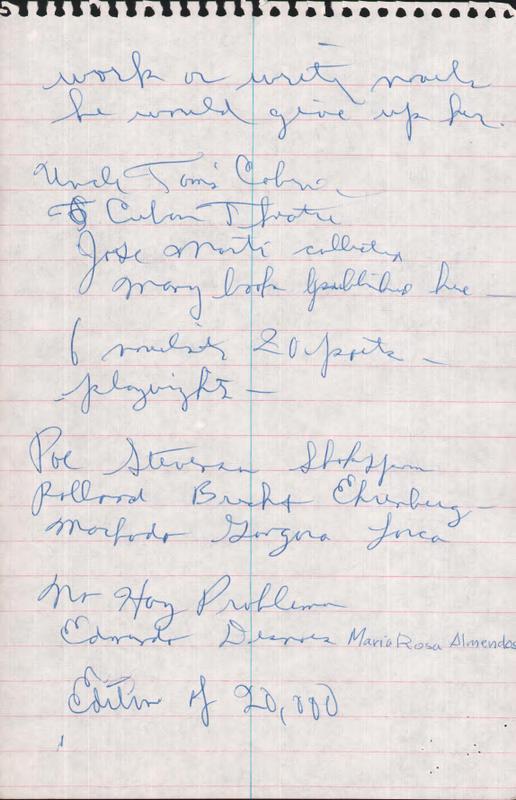 work or write novels
he would give up her.
Uncle Tom's Cabin
Cuban Theatre
Jose Marti collected
Many books published here —
6 novelists 20 poets —
playwrights —
Poe Stevenson Shakspear
Rolland Brecht Ehrenburg —
Machado Gongora Lorca
No Hay Problema
Edmundo Desnoes Maria Rosa Almendos
Edition of 20,000